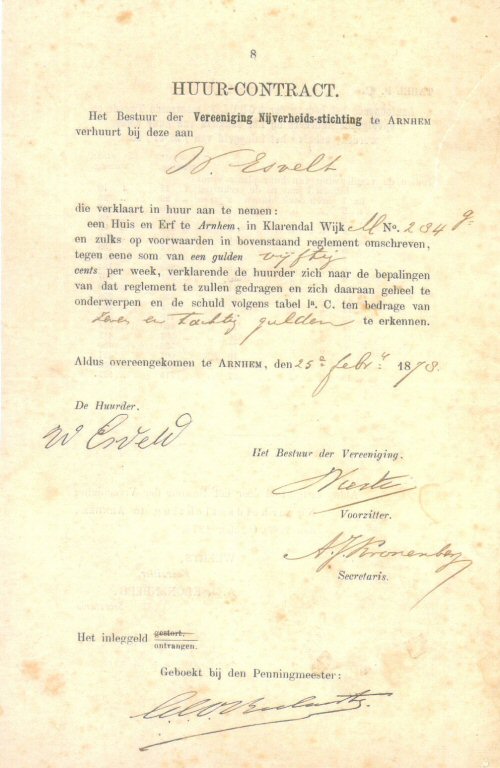 8
HUUR-CONTRACT.
Het Bestuur der Vereeniging Nijverheids-stichting te ARNHEM
verhuurt bij deze aan
W. Esvelt
die verklaart in huur aan te nemen:
een Huis en Erf te Arnhem, in Klarendal Wijk M No. 234 g.
en zulks op voorwaarden in bovenstaand reglement omschreven,
tegen eene som van een gulden vijftig
cents per week, verklarende de huurder zich naar de bepalingen
van dat reglement te zullen gedragen en zich daaraan geheel te
onderwerpen en de schuld volgens tabel la. C. ten bedrage van
zeven en tachtig gulden te erkennen.
Aldus overeengekomen te ARNHEM, den 25e febr. 1878.
De Huurder.
W Esveld
Het Bestuur der Vereeniging.
Voorzitter.
A.J. Kronenberg
Secretaris.
Het inleggeld gestort.
ontvangen.
Geboekt bij den Penningmeester: